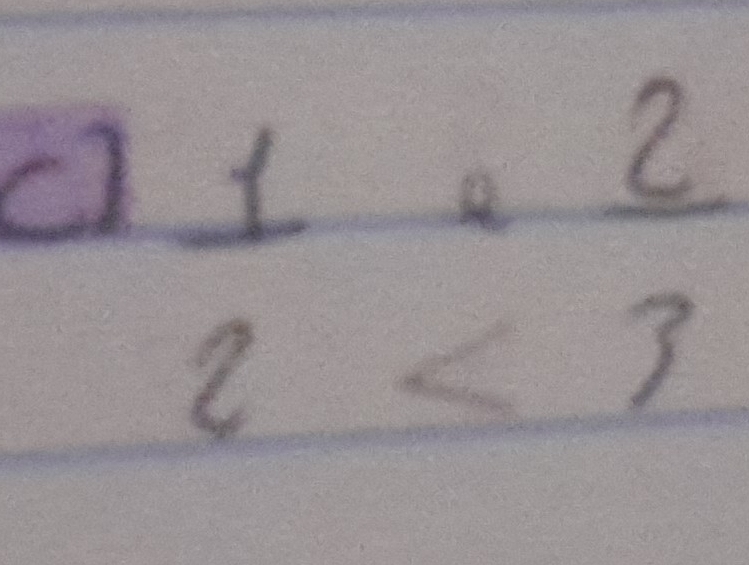 c) 1 e 2
2 < 3